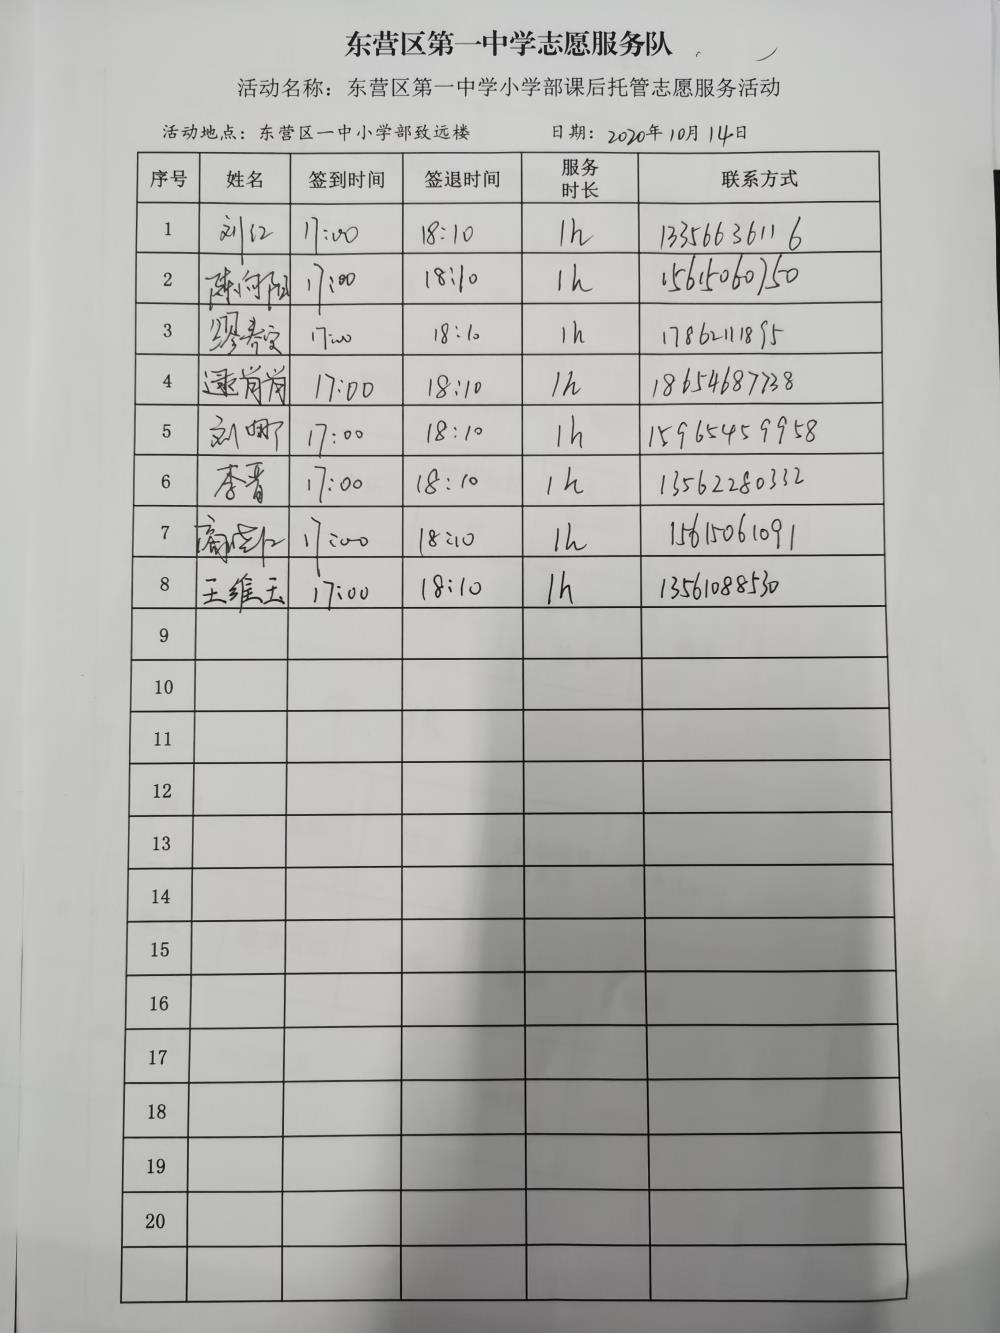 东营区第一中学志愿服务队
活动名称：东营区第一中学小学部课后托管志愿服务活动
活动地点：东营区一中小学部致远楼 日期：2020年10月14日
序号 姓名 签到时间 签退时间 服务时长 联系方式
1 刘红 17:00 18:10 1h 13356636116
2 陈向阳 17:00 18:10 1h 15615060750
3 缪春宝 17:00 18:10 1h 17862111895
4 逯肖肖 17:00 18:10 1h 18654687738
5 刘娜 17:00 18:10 1h 15965459958
6 李晋 17:00 18:10 1h 13562280332
7 17:00 18:10 1h 15615061091
8 王维玉 17:00 18:10 1h 13561088530
9
10
11
12
13
14
15
16
17
18
19
20